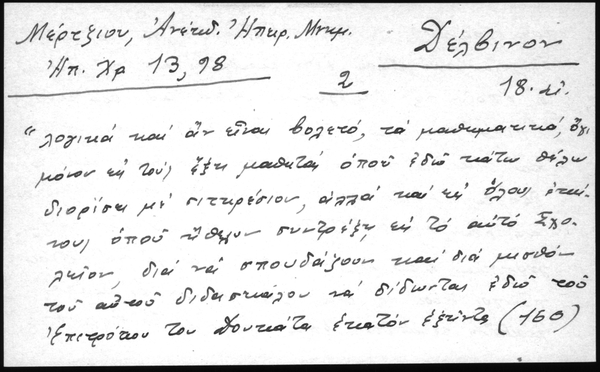 Μέρτζιου, Ἀνέκδ. Ἠπειρ. Μνημ.
Δέλβινον
Ἠπ. Χρ 13, 98
2
18. αἰ.
"λογικά καί ἄν εἶναι βολετό, τά μαθηματικά, ὄχι
μόνον εἰς τούς ἕξη μαθητάς ὁπού ἐδῶ κάτω θέλω
διορίσει μέ σιτηρέσιον, ἀλλά καί εἰς ὅλους ἐκεί-
νους ὁπού ἤθελον συντρέξῃ εἰς τό αὐτό Σχο-
λεῖον, διά νά σπουδάξουν καί διά μισθόν
τοῦ αὐτοῦ διδασκάλου νά δίδωνται ἐδῶ τοῦ
Ἐπιτρόπου των δουκάτα ἑκατόν ἑξήντα (160)